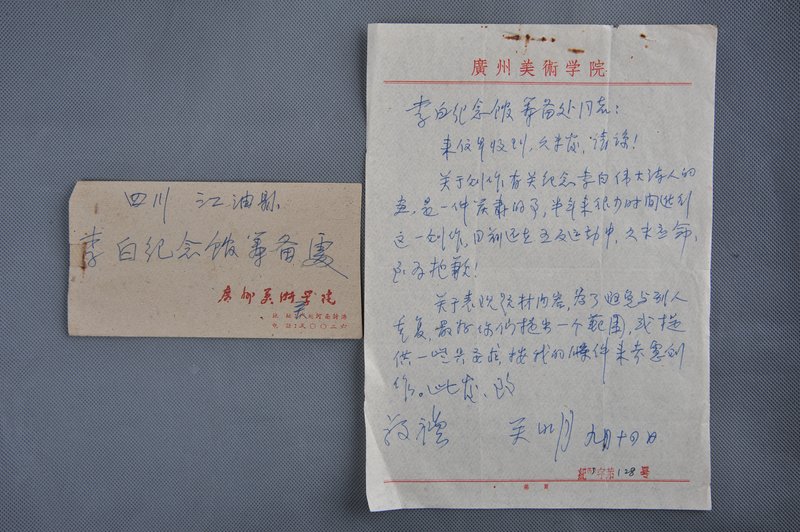 四川 江油县
李白纪念馆筹备处
广州美术学院
廣州美術学院
李白纪念馆筹备处同志：
来信早收到，久未复，请谅！
关于创作有关纪念李白伟大诗人的
画，是一件严肃的事，半年来很少时间进行
这一创作，目前还在五反运动中，久未
抱歉！
关于表现 材内容，为了避免与别人
重复，最好你们提出一个範围，或提
供一些 ，按我的條件来考虑创
作。此复，致
敬礼 吴 九月十四日
128号